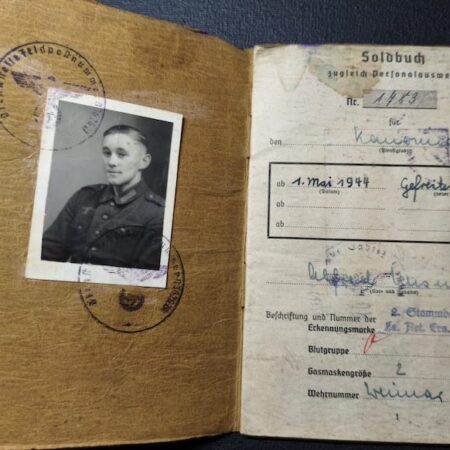 Dienststelle Feldpostnummer
Soldbuch
zugleich Personalauswe
Nr. 1983
für
den Kanonie
(Dienstgrad)
ab 1. Mai 1944 Gefreite
(Datum)
ab
ab
Alfred
(Vor- und Zuname)
Beschriftung und Nummer der
Erkennungsmarke
2. Stammb
Blutgruppe
Gasmaskengröße 2
Wehrnummer Weimar
1